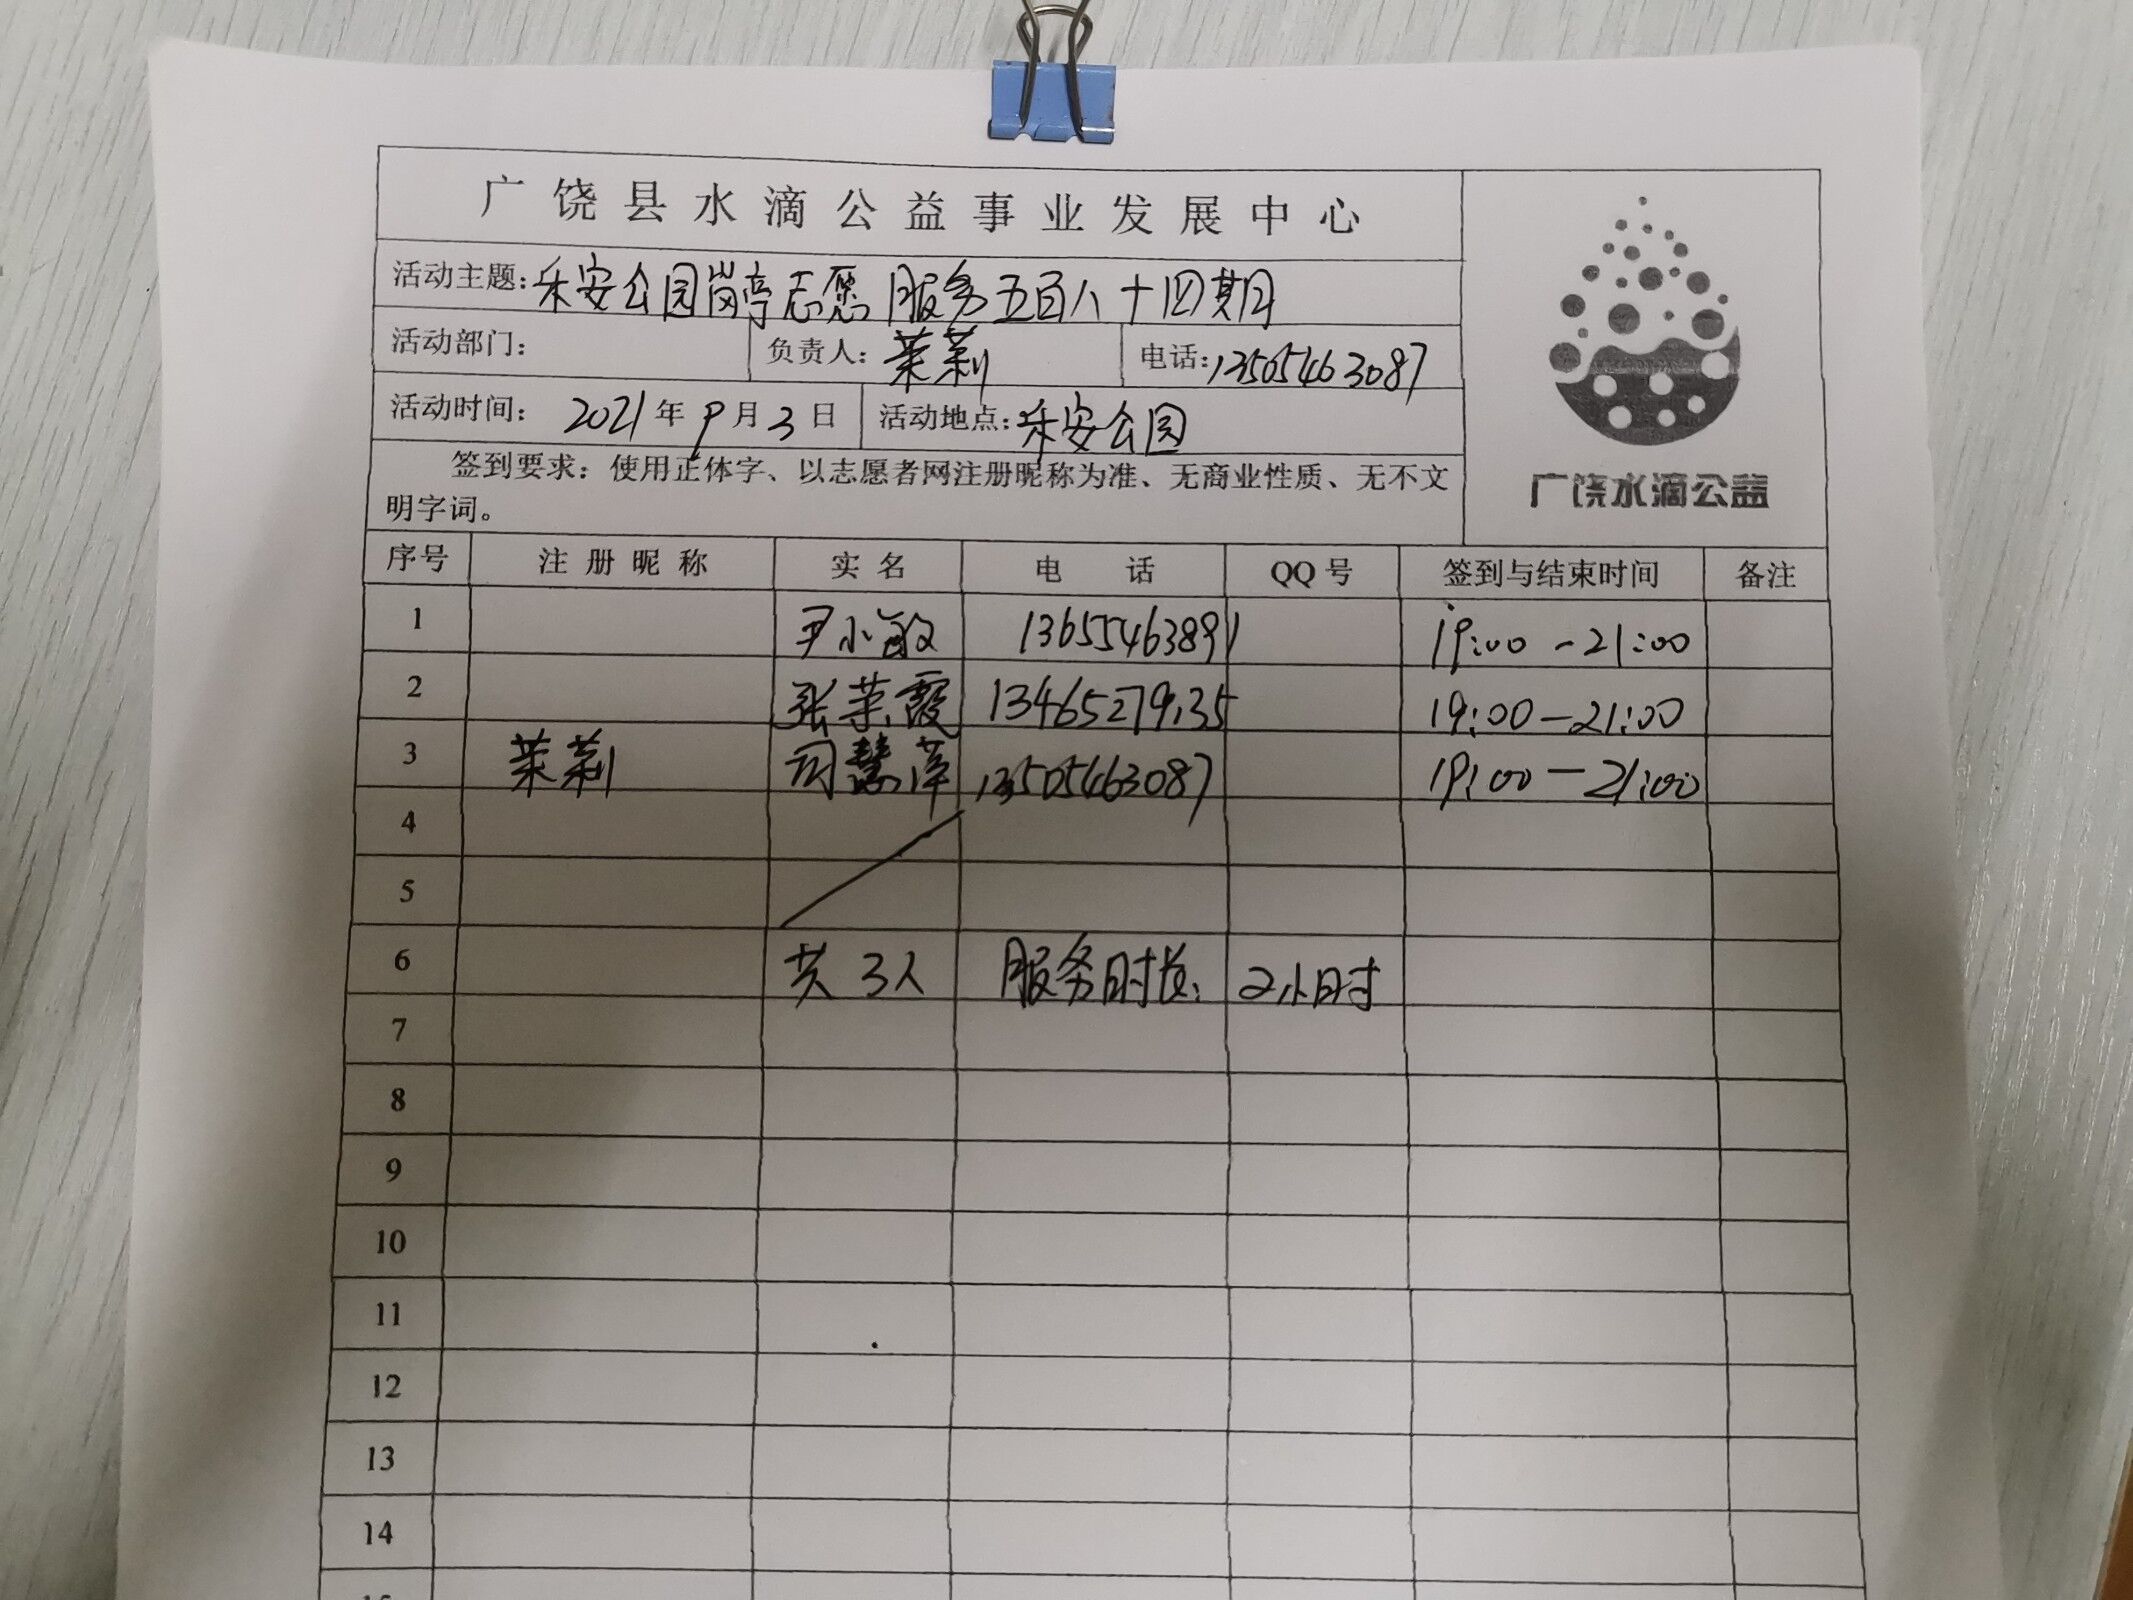 广饶县水滴公益事业发展中心
活动主题:乐安公园岗亭志愿服务五百八十四期
活动部门: 负责人:茉莉 电话:13505463087
活动时间: 2021年9月3日 活动地点:乐安公园
签到要求:使用正体字、以志愿者网注册昵称为准、无商业性质、无不文
明字词。
广饶水滴公益
序号 注册昵称 实名 电 话 QQ号 签到与结束时间 备注
1 尹小敏 13655463891 19:00-21:00
2 张荣霞 19:00-21:00
3 茉莉 司慧萍 13505463087 19:00-21:00
4
5
6 共3人 服务时长: 2小时
7
8
9
10
11
12
13
14